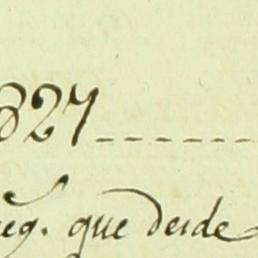 827------
eg. que desde